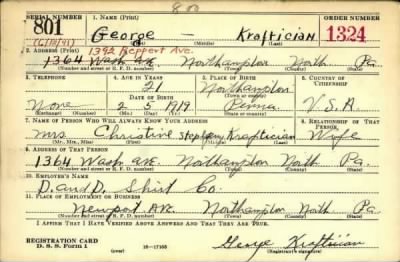 800
SERIAL NUMBER 1. NAME (Print) ORDER NUMBER
801 George — Kraftician 1324
(First) (Middle) (Last)
2. ADDRESS (Print) 1392 Reppert Ave.
1364 Wash Ave. Northampton North Pa.
(Number and street or R. F. D. number) (Town) (County) (State)
3. TELEPHONE 4. AGE IN YEARS 5. PLACE OF BIRTH 6. COUNTRY OF CITIZENSHIP
21 Northampton
None DATE OF BIRTH (Town or county) U.S.A
2 5 1919 Penna.
(Mo.) (Day) (Yr.) (State or country)
7. NAME OF PERSON WHO WILL ALWAYS KNOW YOUR ADDRESS 8. RELATIONSHIP OF THAT PERSON
Mrs Christine Kraftician Wife
(Mr., Mrs., Miss) (First) (Middle) (Last)
9. ADDRESS OF THAT PERSON
1364 Wash Ave. Northampton North Pa.
(Number and street or R. F. D. number) (Town) (County) (State)
10. EMPLOYER'S NAME
D. and D. Shirt Co.
11. PLACE OF EMPLOYMENT OR BUSINESS
Newport Ave. Northampton North Pa
(Number and street or R. F. D. number) (Town) (County) (State)
I AFFIRM THAT I HAVE VERIFIED ABOVE ANSWERS AND THAT THEY ARE TRUE.
REGISTRATION CARD
D. S. S. Form 1 (over) 16—17105 George Kraftician